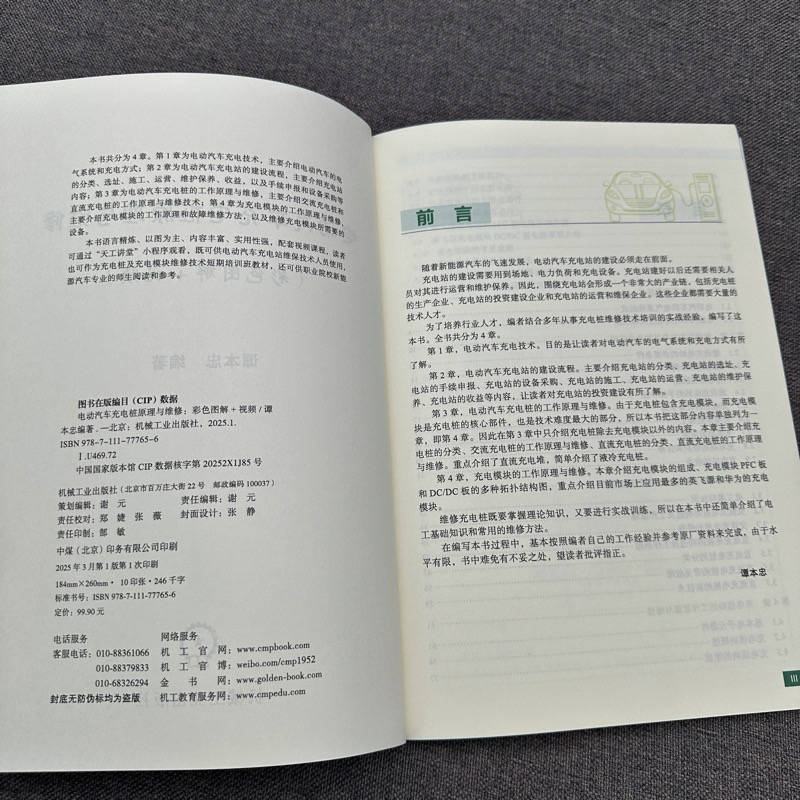 本书共分为4章。第1章为电动汽车充电技术,主要介绍电动汽车的电
气系统和充电方式;第2章为电动汽车充电站的建设流程,主要介绍充电站
的分类、选址、施工、运营、维护保养、收益,以及手续申报和设备采购等
内容;第3章为电动汽车充电桩的工作原理与维修,主要介绍交流充电桩和
直流充电桩的工作原理与维修技术;第4章为充电模块的工作原理与维修,
主要介绍充电模块的工作原理和故障维修方法,以及维修充电模块所需要的
设备。
本书语言精炼、以图为主、内容丰富、实用性强,配套视频课程,读者
可通过“天工讲堂”小程序观看,既可供电动汽车充电站维保技术人员使用,
也可作为充电桩及充电模块维修技术短期培训班教材,还可供职业院校新能
源汽车专业的师生阅读和参考。
图书在版编目(CIP)数据
电动汽车充电桩原理与维修:彩色图解+视频/谭
本忠编著. —北京:机械工业出版社,2025.1.
ISBN 978-7-111-77765-6
Ⅰ.U469.72
中国国家版本馆CIP数据核字第20252X1J85号
机械工业出版社(北京市百万庄大街22号 邮政编码100037)
策划编辑:谢 元 责任编辑:谢 元
责任校对:郑 婕 张 薇 封面设计:张 静
责任印制:郜 敏
中煤(北京)印务有限公司印刷
2025年3月第1版第1次印刷
184mm×260mm·10印张·246千字
标准书号:ISBN 978-7-111-77765-6
定价:99.90元
电话服务 网络服务
客服电话:010-88361066 机 工 官 网:www.cmpbook.com
010-88379833 机 工 官 博:weibo.com/cmp1952
010-68326294 金 书 网:www.golden-book.com
封底无防伪标均为盗版 机工教育服务网:www.cmpedu.com
前 言
随着新能源汽车的飞速发展,电动汽车充电站的建设必须走在前面。
充电站的建设需要用到场地、电力负荷和充电设备。充电站建好以后还需要相关人
员对其进行运营和维护保养。因此,围绕充电站会形成一个非常大的产业链,包括充电桩
的生产企业、充电站的投资建设企业和充电站的运营和维保企业。这些企业都需要大量的
技术人才。
为了培养行业人才,编者结合多年从事充电桩维修技术培训的实战经验,编写了这
本书。全书共分为4章。
第1章,电动汽车充电技术。目的是让读者对电动汽车的电气系统和充电方式有所
了解。
第2章,电动汽车充电站的建设流程。主要介绍充电站的分类、充电站的选址、充
电站的手续申报、充电站的设备采购、充电站的施工、充电站的运营、充电站的维护保
养、充电站的收益等内容,让读者对充电站的投资建设有所了解。
第3章,电动汽车充电桩的工作原理与维修。由于充电桩包含充电模块,而充电模
块是充电桩的核心部件,也是技术难度最大的部分,所以本书把这部分内容单独列为一
章,即第4章。因此在第3章中只介绍充电桩除去充电模块以外的内容。本章主要介绍充
电桩的分类、交流充电桩的工作原理与维修、直流充电桩的分类、直流充电桩的工作原理
与维修。重点介绍了直流充电堆,简单介绍了液冷充电桩。
第4章,充电模块的工作原理与维修。本章介绍充电模块的组成、充电模块PFC板
和DC/DC板的多种拓扑结构图,重点介绍目前市场上应用最多的英飞源和华为的充电
模块。
维修充电桩既要掌握理论知识,又要进行实战训练,所以在本书中还简单介绍了电
工基础知识和常用的维修方法。
在编写本书过程中,基本按照编者自己的工作经验并参考原厂资料来完成,由于水
平有限,书中难免有不妥之处,望读者批评指正。
谭本忠
III